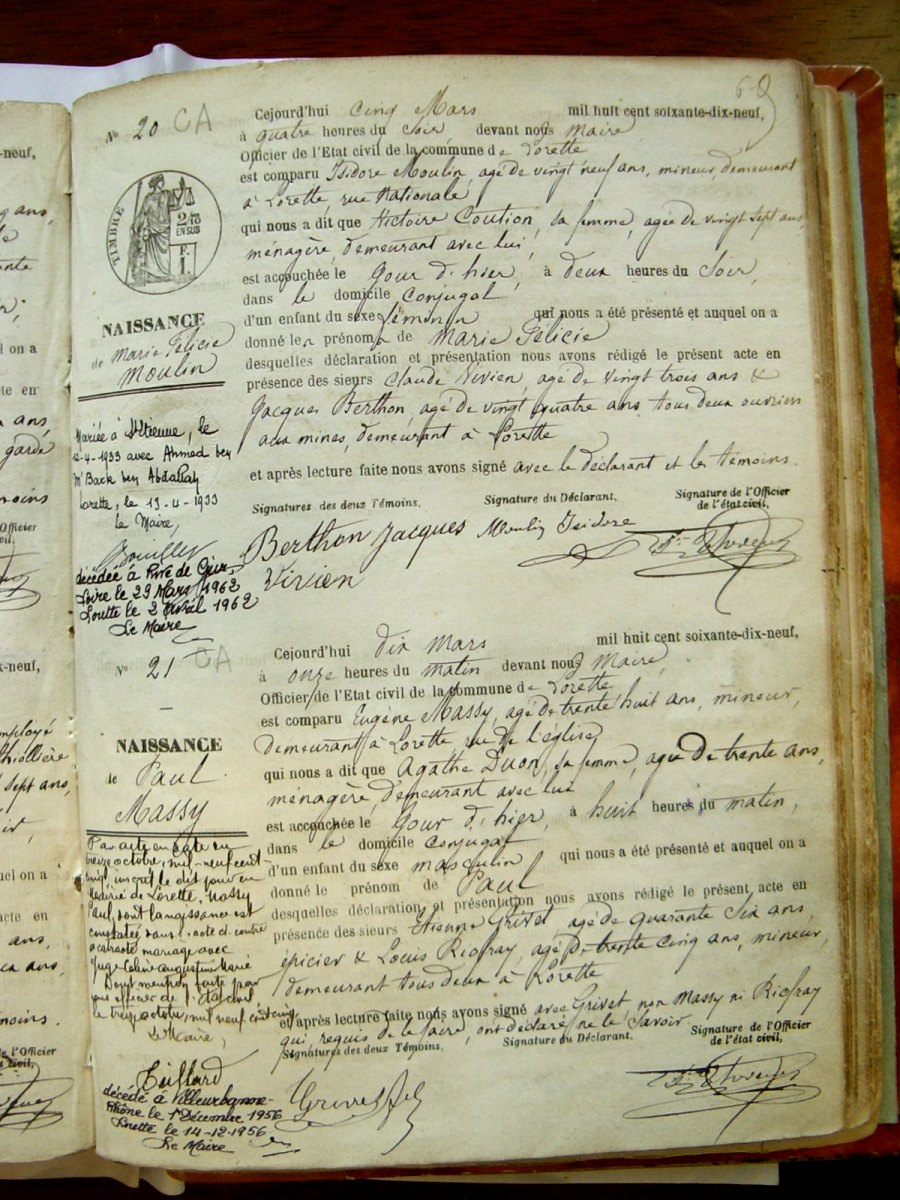 -neuf,
ans,
-neuf,
on a
en
ans,
garde
Officier
-neuf,
employé
sept ans,
on a
acte en
ans,
ans,
l'Officier
civil,
N° 20 CA
TIMBRE
2/10
EN SUS
NAISSANCE
de Marie Félicie
Moulin
Mariée à St Etienne, le
12-4-1933 avec Ahmed ben
M'Bark ben Abdallah
Lorette, le 13-4-1933
Le Maire,
décédée à Rive de Gier
Loire le 29 Mars 1962
Lorette le 2 Avril 1962
Le Maire
Cejourd'hui cinq Mars mil huit cent soixante-dix-neuf,
à quatre heures du soir, devant nous Maire
Officier de l'Etat civil de la commune de Lorette
est comparu Isidore Moulin, agé de vingt neuf ans, mineur demeurant
à Lorette, rue Nationale
qui nous a dit que Victoire Coution, sa femme, agée de vingt sept ans,
ménagère, demeurant avec lui,
est accouchée le jour d'hier, à deux heures du soir,
dans le domicile conjugal
d'un enfant du sexe féminin qui nous a été présenté et auquel on a
donné les prénoms de Marie Félicie
desquelles déclaration et présentation nous avons rédigé le présent acte en
présence des sieurs Claude Vivien, agé de vingt trois ans &
Jacques Berthon, agé de vingt quatre ans, tous deux ouvriers
aux mines, demeurant à Lorette
et après lecture faite nous avons signé avec le déclarant et les témoins.
Signatures des deux Témoins. Signature du Déclarant. Signature de l'Officier
de l'état civil,
Berthon Jacques Moulin Isidore
Vivien
N° 21 CA
NAISSANCE
de Paul
Massy
Par acte en date du
treize octobre, mil-neuf cent-
vingt, inscrit le dit jour en
mairie de Lorette, Massy
Paul, dont la naissance est
constatée dans l'acte ci-contre
a contracté mariage avec
Juge Celine Augustine Marie
Dont mention faite par
nous officier de l'état civil
le treize octobre, mil neuf cent vingt
Le Maire,
décédé à Villeurbanne-
Rhône le 1er Décembre 1956
Lorette le 14-12-1956
Le Maire
Cejourd'hui dix Mars mil huit cent soixante-dix-neuf,
à onze heures du matin devant nous Maire,
Officier de l'Etat civil de la commune de Lorette
est comparu Eugène Massy, agé de trente huit ans, mineur,
demeurant à Lorette, rue de l'église
qui nous a dit que Agathe Duon, sa femme, agée de trente ans,
ménagère, demeurant avec lui
est accouchée le jour d'hier, à huit heures du matin,
dans le domicile conjugal
d'un enfant du sexe masculin qui nous a été présenté et auquel on a
donné le prénom de Paul
desquelles déclaration et présentation nous avons rédigé le présent acte en
présence des sieurs Etienne Grivet, agé de quarante six ans,
épicier & Louis Riofray, agé de trente cinq ans, mineur
demeurant tous deux à Lorette
et après lecture faite nous avons signé avec Grivet, non Massy ni Riofray
qui, requis de le faire, ont déclaré ne le savoir.
Signatures des deux Témoins. Signature du Déclarant. Signature de l'Officier
de l'état civil,